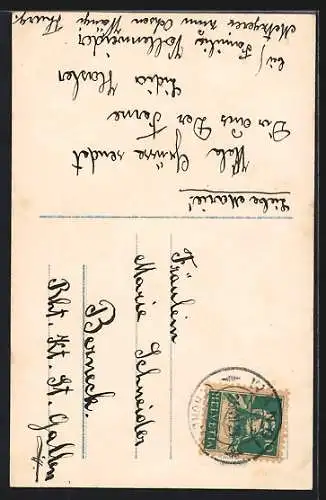 Liebe Marie!
Viele Grüsse sendet
Dir aus der Ferne
Lidia Hasler
bei Familie Vollenweider
Metzgerei zum Ochsen Wängi Thurg.
Fräulein
Marie Schneider
Berneck.
Rht. Kt. St. Gallen
HELVETIA
10